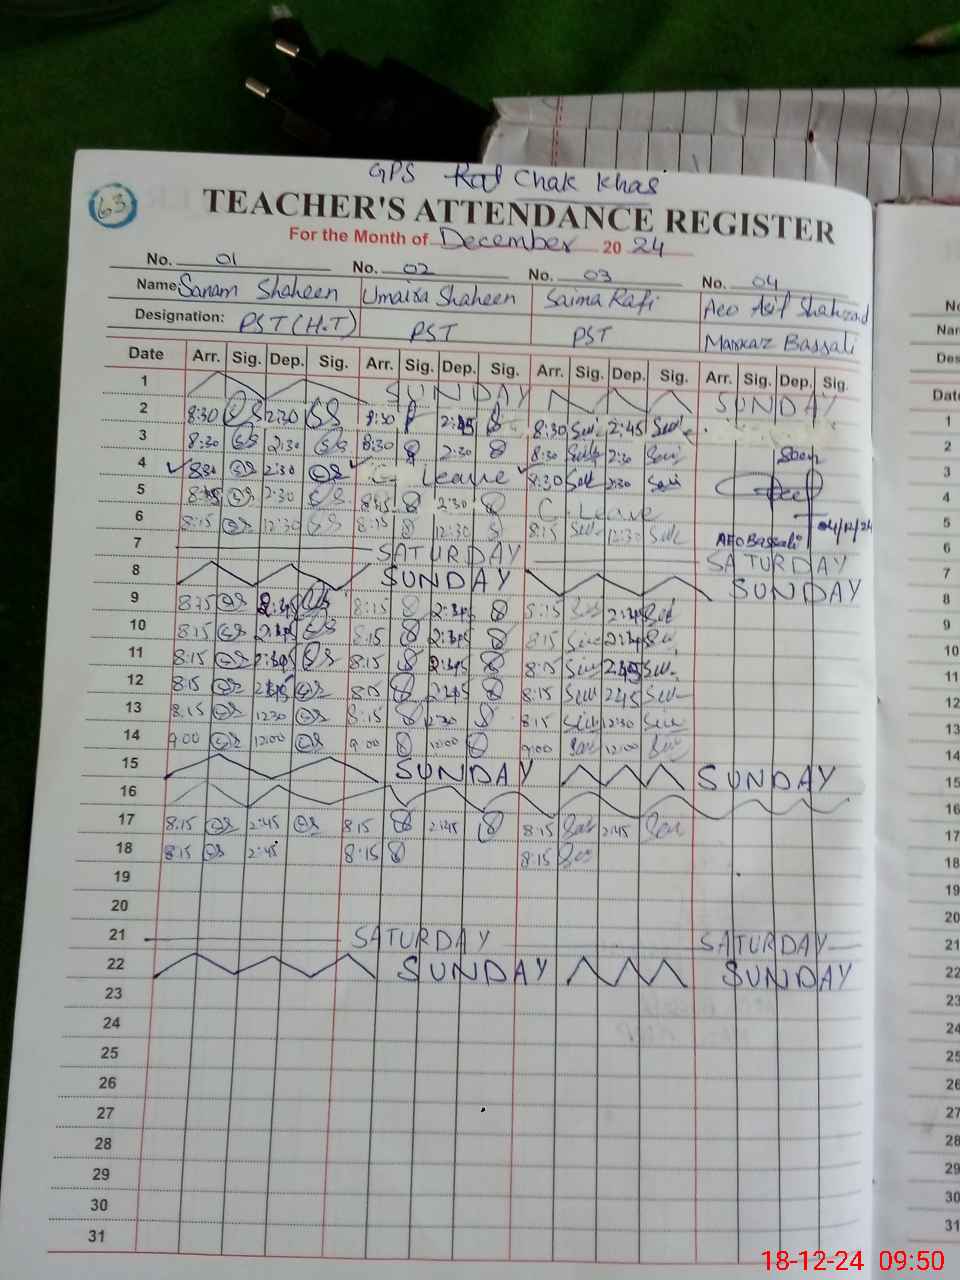 GPS Rod Chak Khas
63
TEACHER'S ATTENDANCE REGISTER
For the Month of December 20 24
No. 01 No. 02 No. 03 No. 04
Name Sanam Shaheen Umaira Shaheen Saima Rafi Aeo Asif Shahzad
Designation: PST (H.T) PST PST Markaz Bassali
Date Arr. Sig. Dep. Sig. Arr. Sig. Dep. Sig. Arr. Sig. Dep. Sig. Arr. Sig. Dep. Sig.
1 SUNDAY SUNDAY
2 8:30 2:30 8:30 2:45 8:30 2:45
3 8:30 2:30 8:30 2:30 8:30 2:30 Seen
4 8:30 2:30 Leave 8:30 2:30
5 8:15 2:30 8:15 2:30 C. Leave 04/12/24
6 8:15 12:30 8:15 12:30 8:15 12:30 AEO Bassali
7 SATURDAY SATURDAY
8 SUNDAY SUNDAY
9 8:15 2:45 8:15 2:45 8:15 2:45
10 8:15 2:45 8:15 2:45 8:15 2:45
11 8:15 2:45 8:15 2:45 8:15 2:45
12 8:15 2:45 8:15 2:45 8:15 2:45
13 8:15 12:30 8:15 12:30 8:15 12:30
14 9:00 12:00 9:00 12:00 9:00 12:00
15 SUNDAY SUNDAY
16
17 8:15 2:45 8:15 2:45 8:15 2:45
18 8:15 2:45 8:15 8:15
19
20
21 SATURDAY SATURDAY
22 SUNDAY SUNDAY
23
24
25
26
27
28
29
30
31
18-12-24 09:50